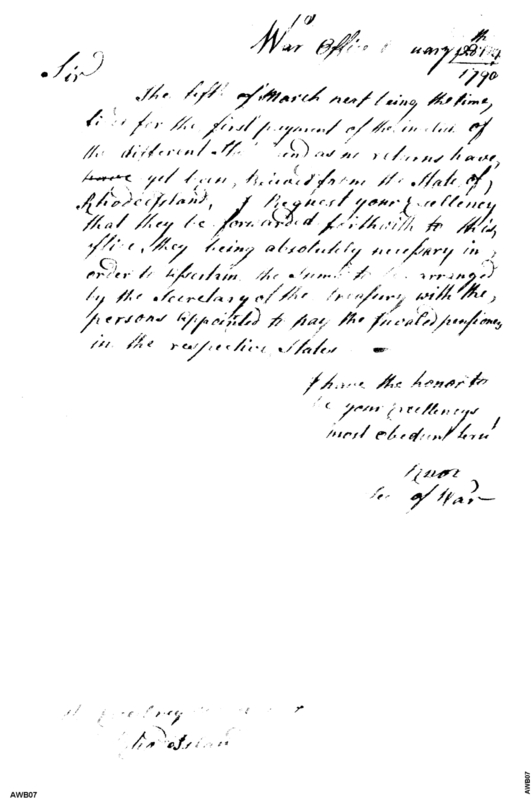 War Office
1790
Sir
The fifth of March next being the time,
for the first payment of the of
the different and as no returns have,
have yet been, Received from the State of,
Rhode Island, I Request your Excellency
that they be forwarded forthwith to this,
office, they being absolutely necessary in,
order to ascertain the sums to be arranged
by the Secretary of the treasury with the,
persons appointed to pay the Invalid pensioners
in the respective States —
I have the honor to
be your Excellencys
most obedient servt
Knox
Sec of War
AWB07
AWB07